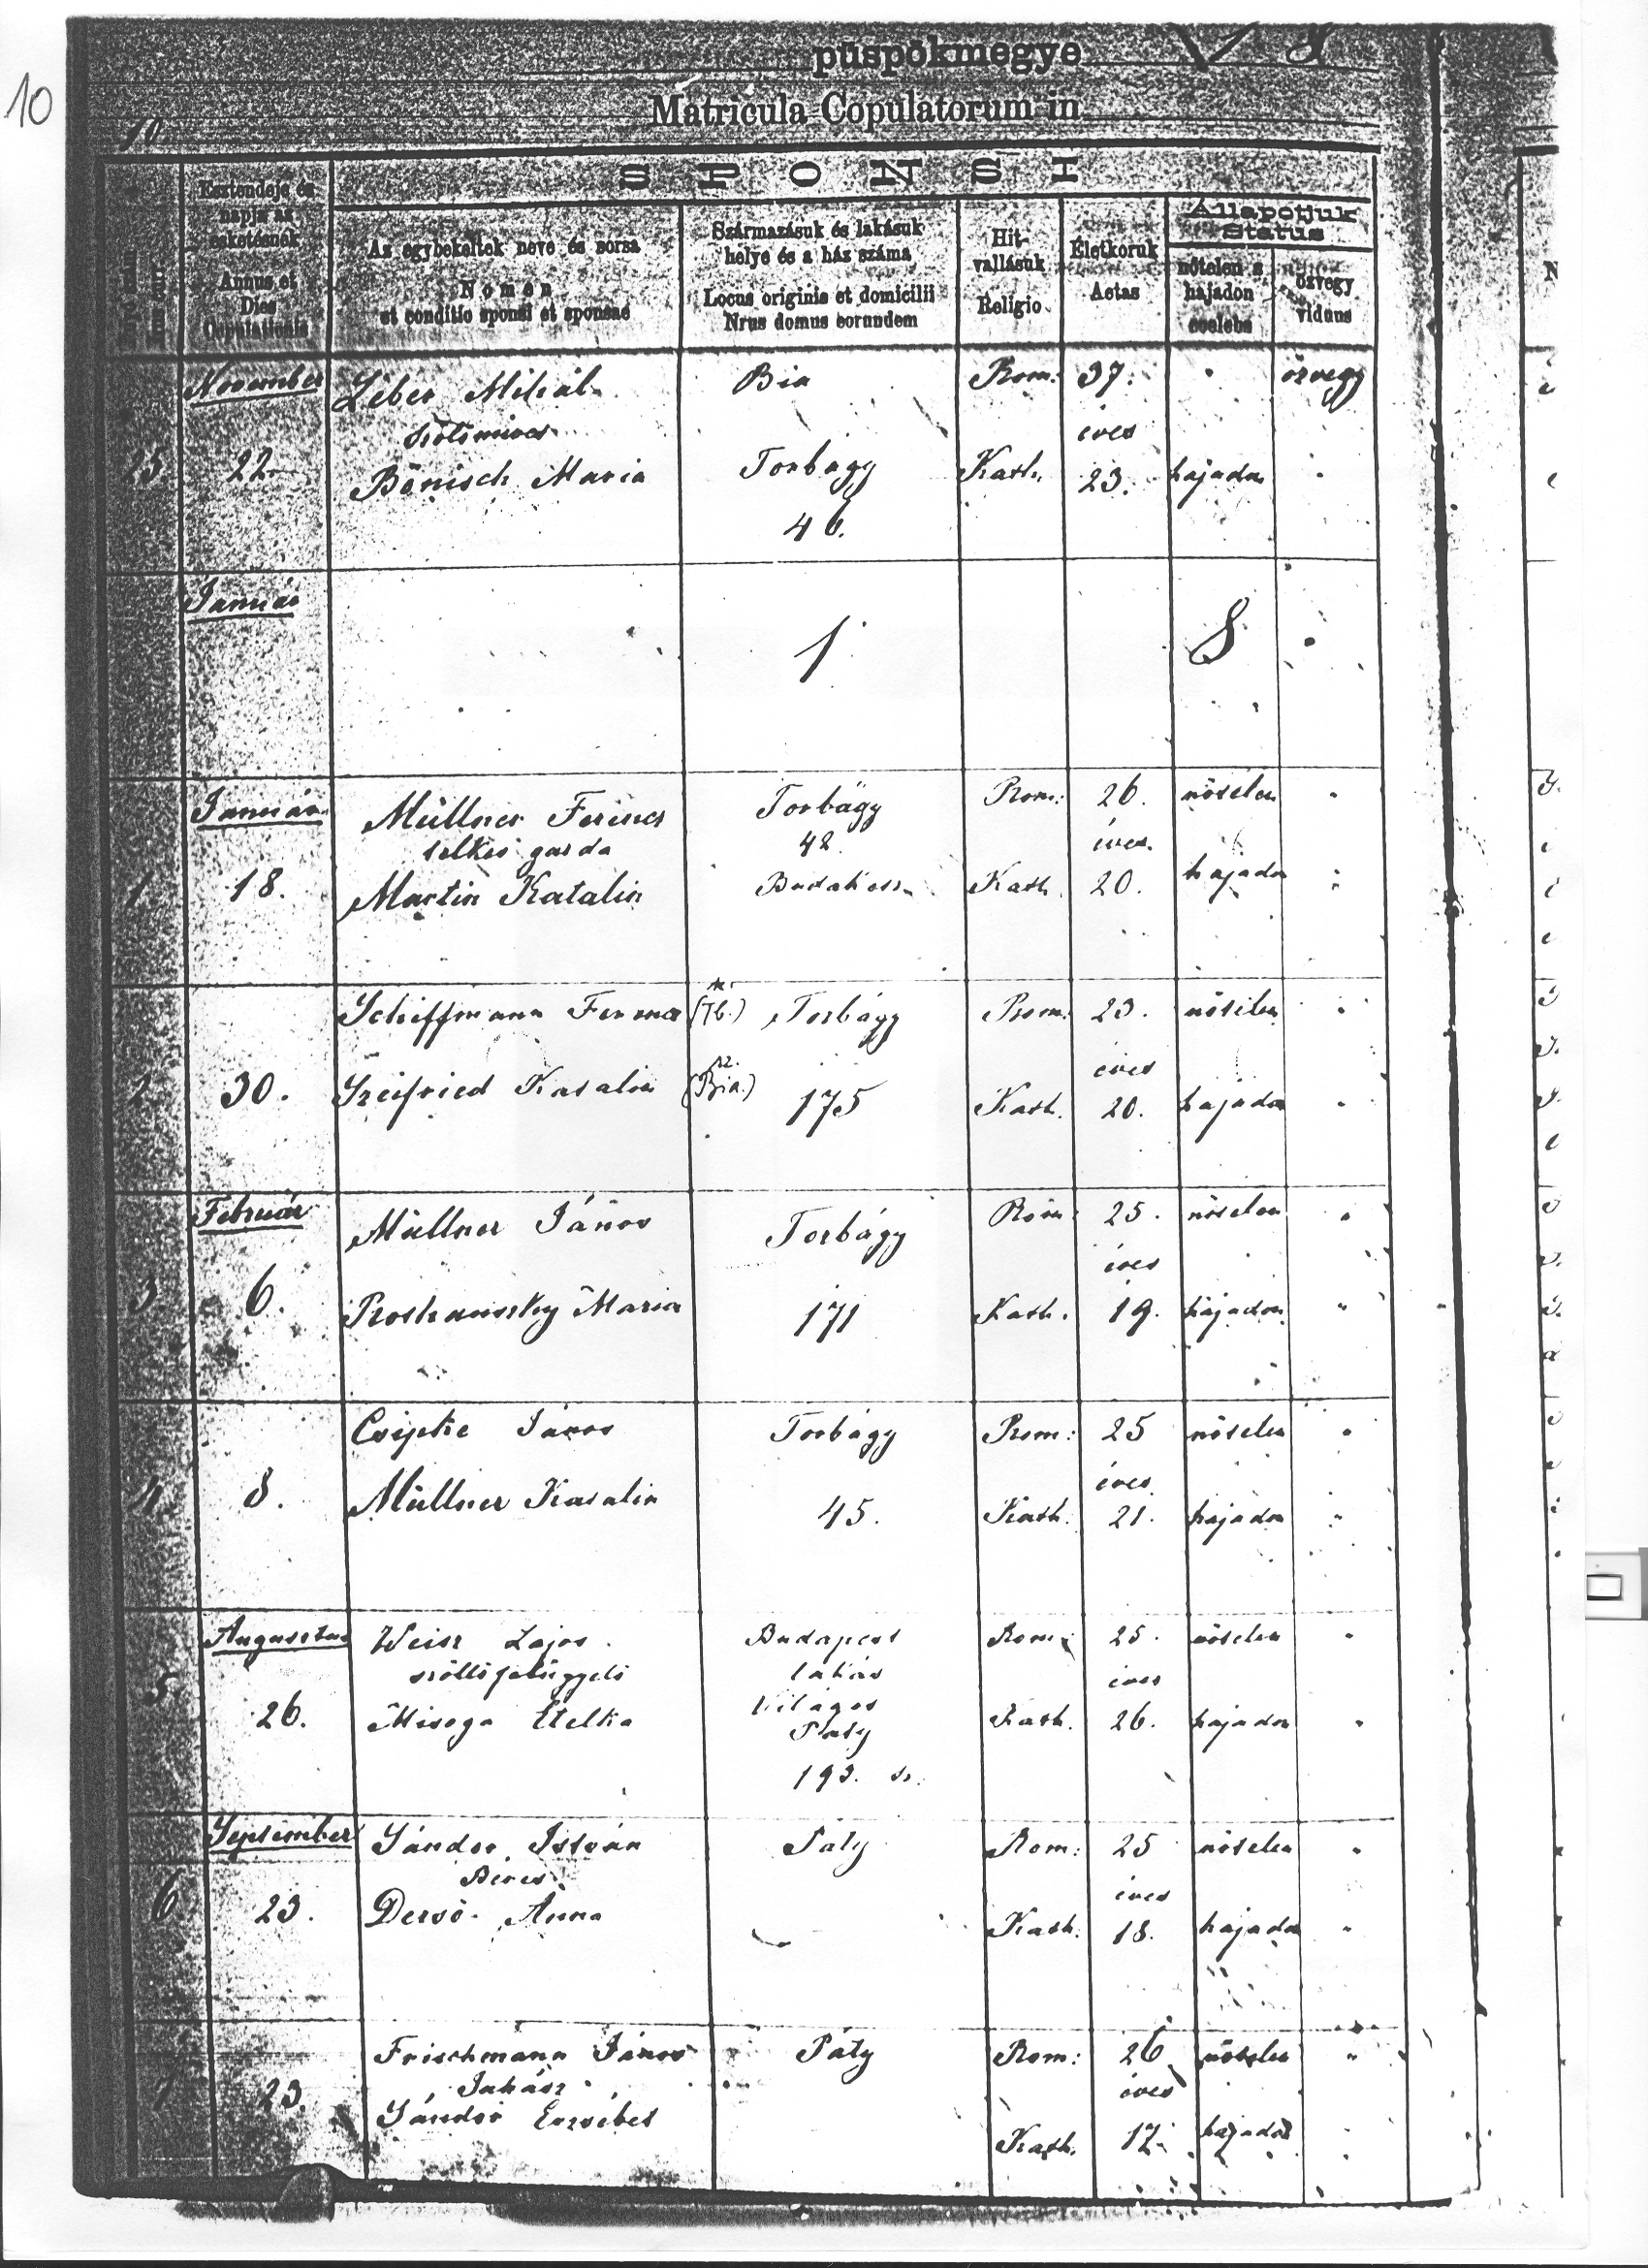 10
püspökmegye
Matricula Copulatorum in
10
SPONSI
Esztendeje és
napja az
esketésnek
Annus et
Dies
Copulationis
Az egybekeltek neve és sorsa
Nomen
et conditio sponsi et sponsae
Származásuk és lakásuk
helye és a ház száma
Locus originis et domicilii
Nrus domus eorundem
Hit-
vallásuk
Religio
Életkoruk
Aetas
Állapotjuk
Status
nőtelen s
hajadon
coelebs
özvegy
viduus
November Léber Mihál Bia Rom: 37. özvegy
éves
25 22. Bönisch Maria Torbágy Kath. 23. hajadon
46.
Január
1 8
Január Müllner Ferincz Torbágy Rom: 26. nőtelen
telkes gazda 48. éves
1 18. Martin Katalin Budakesz Kath. 20. hajadon
Schiffmann Ferencz (Tb.) Torbágy Rom. 23. nőtelen
éves
2. 30. Szeifried Katalin (Bia.) 175 Kath. 20. hajadon
Február Müllner János Torbágy Rom: 25. nőtelen
éves
3 6. Maria 171 Kath. 19. hajadon
Csipke János Torbágy Rom: 25 nőtelen
éves
4 8. Müllner Katalin 45. Kath. 21. hajadon
Augusztus Weisz Lajos Budapest Rom: 25. nőtelen
lakás éves
5. 26. Misoga Etelka Világos Kath. 26. hajadon
Páty
193. sz.
September Sándor István Páty Rom: 25 nőtelen
Béres éves
6 23. Dersö Anna Kath. 18. hajadon
Frischmann János Páty Rom: 26 nőtelen
Juhász éves
7 23. Sándor Erzsébet Kath. 17. hajadon